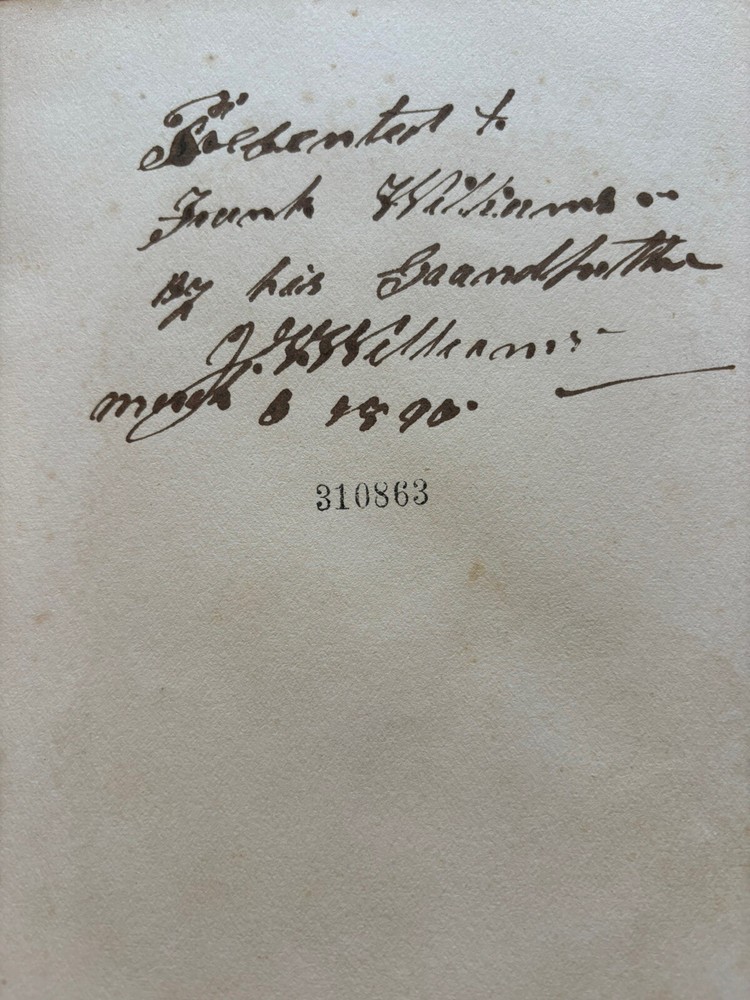 Presented to
Frank Williams
By his Grandfather
J. W Williams
March 6 1890
310863